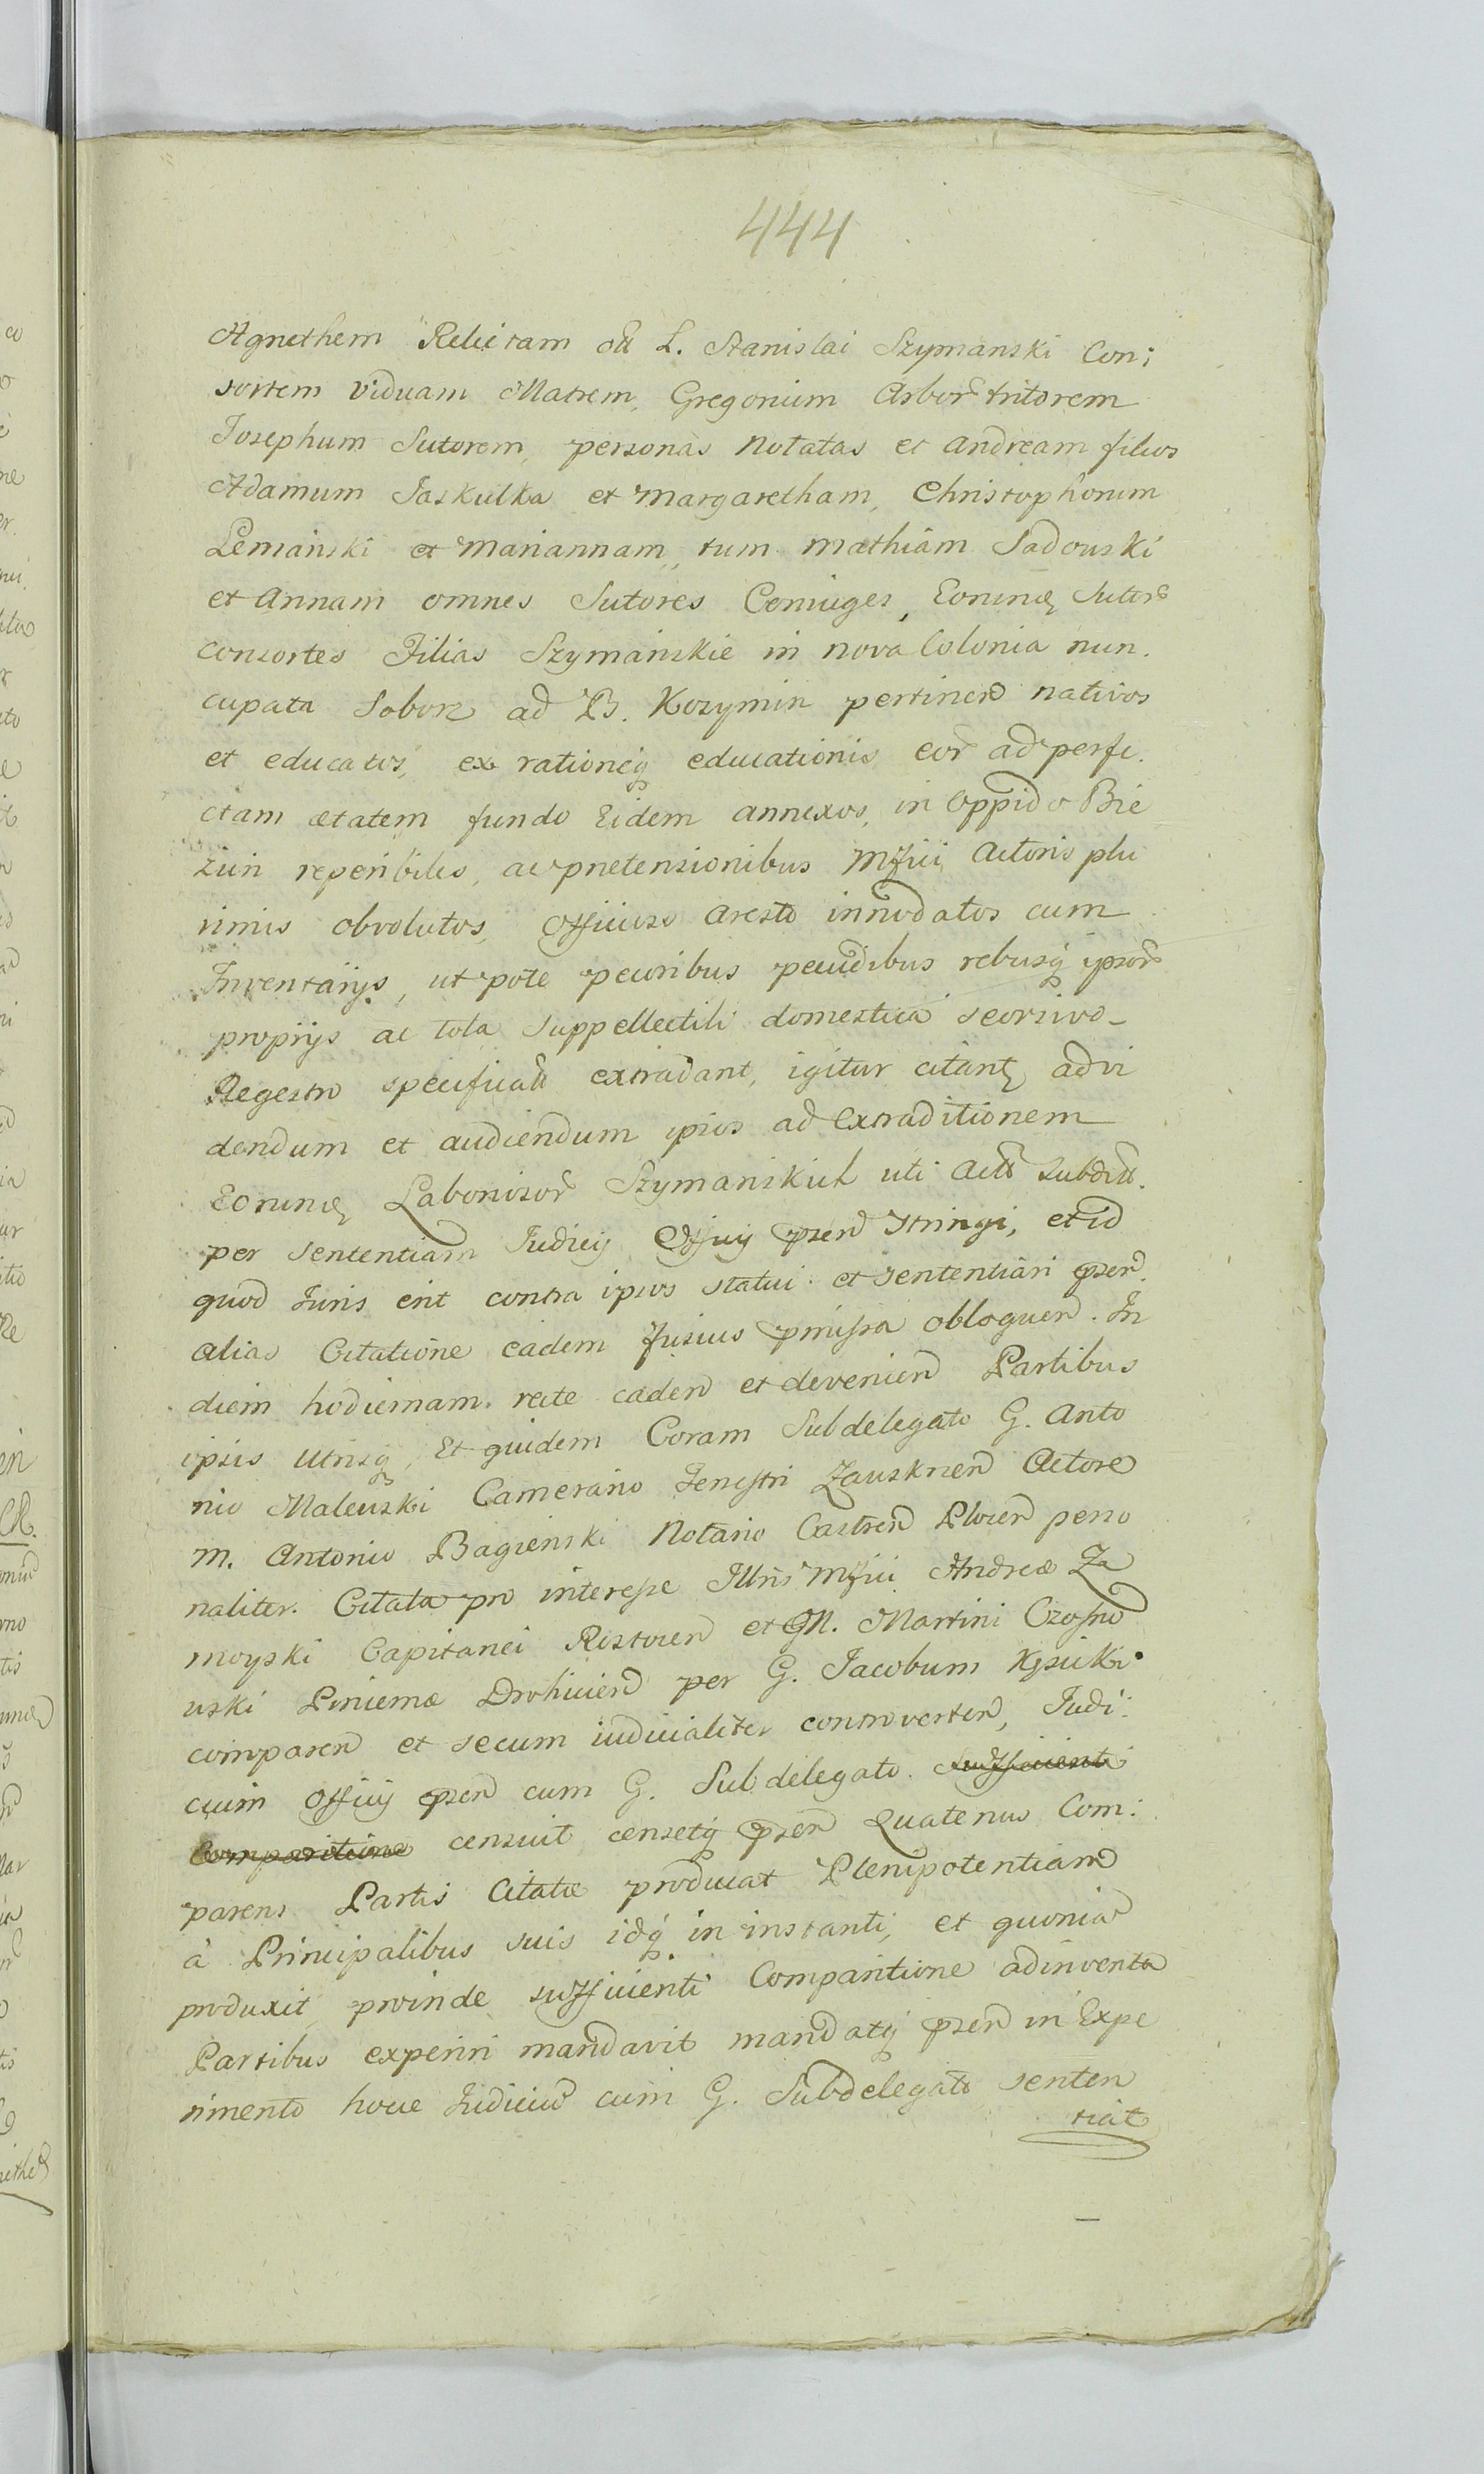 444
Agnethem Relictam olī L. Stanislai Szymanski Con:
sortem Viduam Matrem, Gregorium Arbor tritorem
Josephum Sutorem, personas Notatas et Andream filios
Adamum Jaskulka et Margaretham, Christophorum
Lemański et Mariannam, tum Mathiam Sadouski
et Annam omnes Sutores Coniuges, Eorumq Sutor
Consortes Filias Szymańskie in nova Colonia nun.
cupata Soborz ad B. Kozymin pertinen nativos
et educatos, ex rationeq educationis eor ad perfe.
ctam ætatem fundo Eidem annexos, in Oppido Bie
żun reperibiles, ac prætensionibus Mfici Actoris plu
rimis obvolutos, Officioso Aresto innodatos cum
Inventarijs, ut pote pecoribus pecudibus rebusq ipsor
propijs ac tota Suppellectili domestica seorsivo
Regestro specificatt extradant, igitur citantq ad vi
dendum et audiendum ipsos ad Extraditionem
Eorumq Laboriosor Szymańskich uti Actt Subditt.
per Sententiam Judicij Officij præsen stringi, et id
quod Juris erit contra ipsos statui et sententiari præsen.
alias Citatione eadem fusius præmissa obloquen. In
diem hodiernam recte caden et devenien Partibus
ipsis Utrisq, Et quidem Coram Subdelegato G. Anto
nio Maleuski Camerario Terrestri Zauskrnen Actore
M. Antonio Bagienski Notario Castren Plocen perso
naliter. Citata pro interesse Illris Mfici Andreæ Za
moyski Capitanei Rostocen et GM. Martini Czosno
uski Pincernæ Drohicien per G. Jacobum Kęsicki
comparen et secum iudicialiter controverten, Judi:
cium Officij præsen cum G. Subdelegato. Sufficienti
Comparitione censuit censetq præsen Quatenus Com:
parens Partis Citatæ producat Plenipotentiam
à Principalibus suis idq in instanti, et quonia
produxit, proinde sufficienti Comparitione adinventa
Partibus experiri mandavit mandatq præsen in Expe
rimento hocce Judiciu cum G. Subdelegato senten
tiat